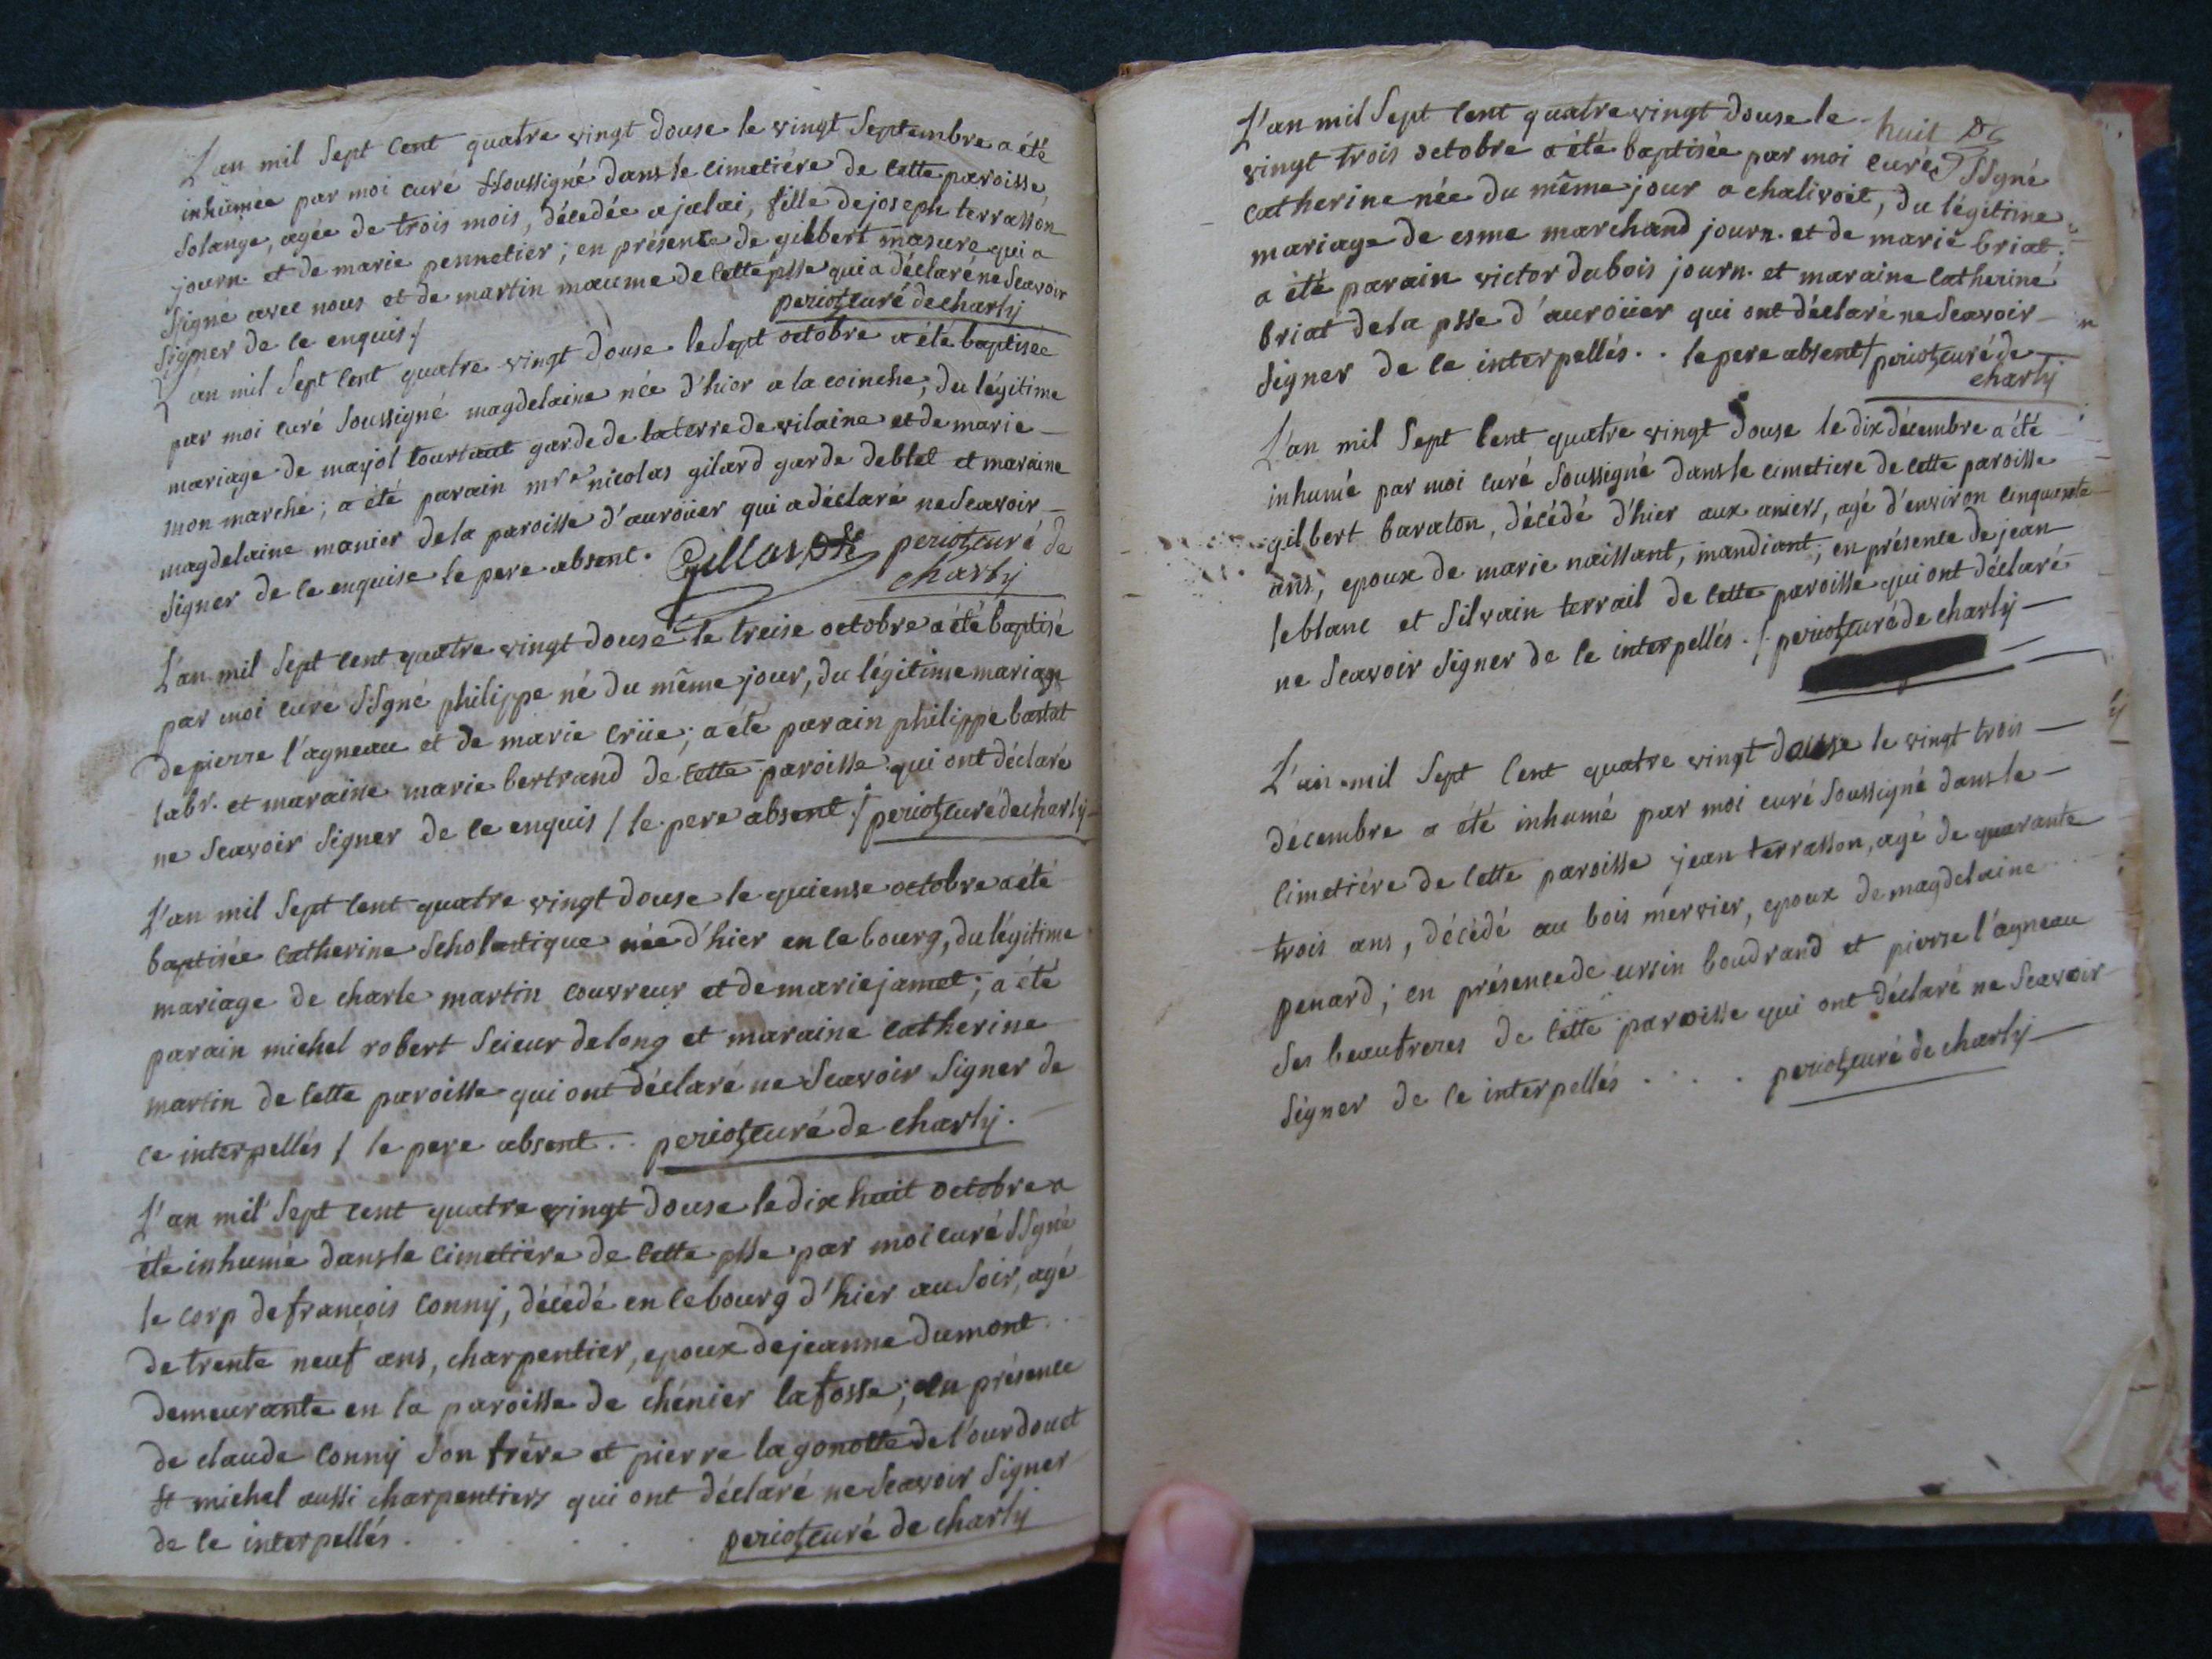 L'an mil Sept Cent quatre vingt douse le vingt Septembre a été
inhumée par moi curé Soussigné dans le cimetiére de cette paroisse
Solange, agée de trois mois, décedée a jalai, fille de joseph terrasson
journ. et de marie pennetier; en présence de gilbert masure qui a
Signé avec nous et de martin maume de cette psse qui a déclaré ne Scavoir
Signer de ce enquis ./
periot curé de charly
L'an mil Sept Cent quatre vingt douse le Sept octobre a été baptisée
par moi curé Soussigné magdelaine née d'hier a la coinche, du légitime
mariage de mayol tourtaut garde de la terre de vilaine et de marie
mon marché; a été parain mre nicolas gilard garde deblet et maraine
magdelaine manier de la paroisse d'auroüer qui a déclaré ne Scavoir
Signer de ce enquise le pere absent. periot curé de
charly
L'an mil Sept Cent quatre vingt douse le treise octobre a été baptisé
par moi curé SSgné philippe né du même jour, du légitime mariage
de pierre l'agneau et de marie crüe; a été parain philippe bastat
labr. et maraine marie bertrand de cette paroisse qui ont déclaré
ne Scavoir Signer de ce enquis / le pere absent ./ periot curé de charly
L'an mil Sept Cent quatre vingt douse le quiense octobre a été
baptisée Catherine Scholastique née d'hier en ce bourg, du légitime
mariage de charle martin couvreur et de marie jamet; a été
parain michel robert Scieur de long et maraine catherine
martin de cette paroisse qui ont déclaré ne Scavoir Signer de
ce interpellés / le pere absent .. periot curé de charly.
L'an mil Sept Cent quatre vingt douse le dix huit octobre a
été inhumé dans le cimetiére de cette psse par moi curé SSgné
le corp de françois Conny, décédé en ce bourg d'hier au Soir, agé
de trente neuf ans, charpentier, epoux de jeanne dumont
demeurante en la paroisse de chénier lafosse; en présence
de claude Conny Son frère et pierre lagonotte de l'ourdouet
St michel aussi charpentiers qui ont déclaré ne Scavoir Signer
de ce interpellés . . . . periot curé de charly
huit
L'an mil Sept Cent quatre vingt douse le
vingt trois octobre a été baptisée par moi curé SSgné
catherine née du même jour a chalivoit, du légitime
mariage de esme marchand journ. et de marie briat.
a été parain victor dubois journ. et maraine Catherine
briat de la psse d'auroüer qui ont déclaré ne Scavoir
Signer de ce interpellés .. le pere absent / periot curé de
charly
L'an mil Sept Cent quatre vingt douse le dix décembre a été
inhumé par moi curé Soussigné dans le cimetiere de cette paroisse
gilbert baraton, décédé d'hier aux aniers, agé d'environ cinquante
ans, epoux de marie naissant, mandiant; en présence de jean
leblanc et Silvain terrail de cette paroisse qui ont déclaré
ne Scavoir Signer de ce interpellés ./. periot curé de charly
L'an mil Sept Cent quatre vingt douse le vingt trois
décembre a été inhumé par moi curé Soussigné dans le
cimetiére de cette paroisse jean terrasson, agé de quarante
trois ans, décédé au bois mervier, epoux de magdelaine
penard; en présence de ursin boudrand et pierre l'agneau
Ses beaufreres de cette paroisse qui ont déclaré ne Scavoir
Signer de ce interpellés . . . . periot curé de charly